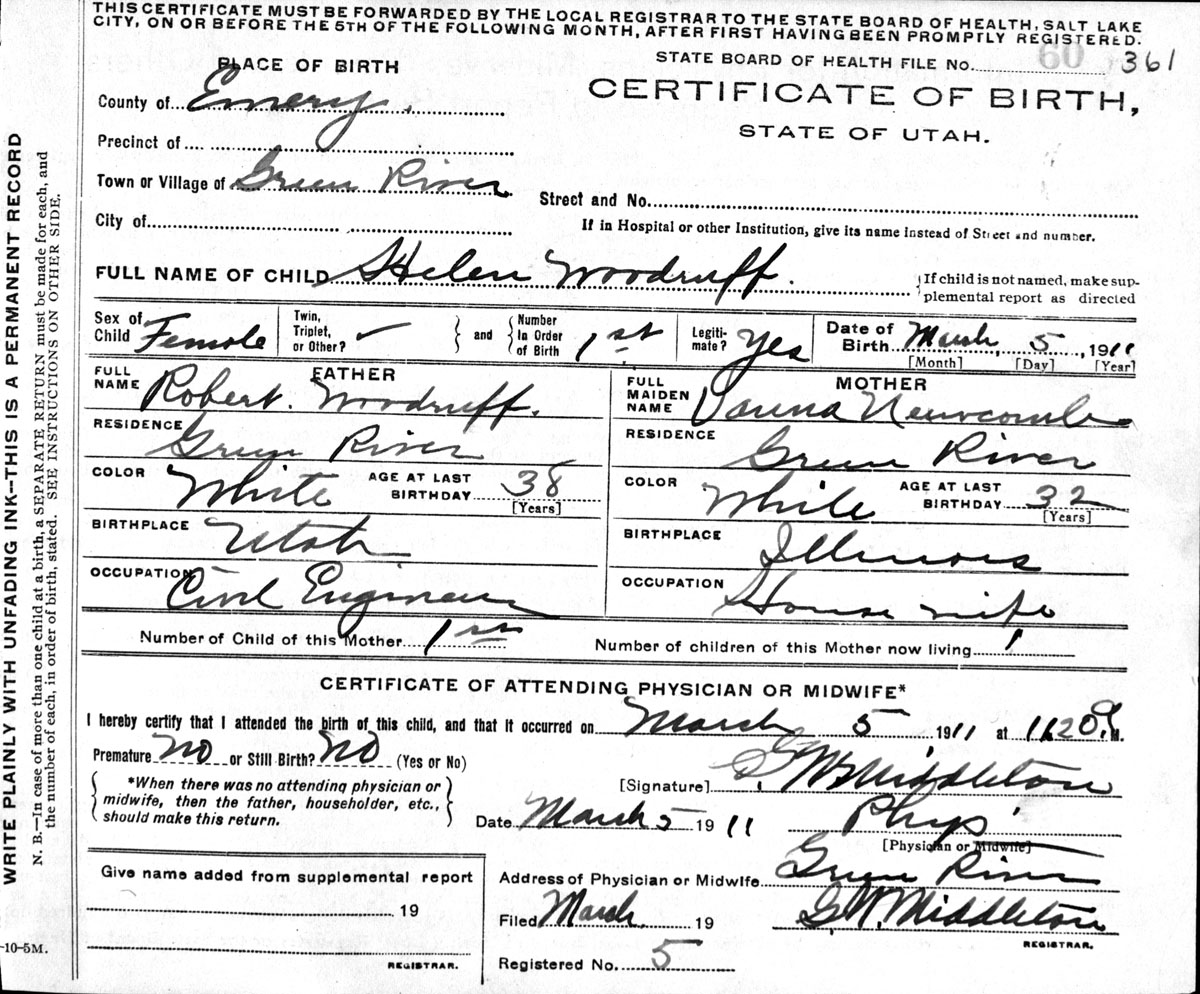 THIS CERTIFICATE MUST BE FORWARDED BY THE LOCAL REGISTRAR TO THE STATE BOARD OF HEALTH, SALT LAKE
CITY, ON OR BEFORE THE 5TH OF THE FOLLOWING MONTH, AFTER FIRST HAVING BEEN PROMPTLY REGISTERED.
STATE BOARD OF HEALTH FILE No. 60 361
PLACE OF BIRTH
CERTIFICATE OF BIRTH,
STATE OF UTAH.
County of Emery
Precinct of
Town or Village of Green River
Street and No.
City of
If in Hospital or other Institution, give its name instead of Street and number.
FULL NAME OF CHILD Helen Woodruff.
{If child is not named, make sup-
plemental report as directed
Sex of Child Female
Twin, Triplet, or Other? ✓
and
Number In Order of Birth 1st
Legiti-mate? Yes
Date of Birth March 5, 1911
[Month] [Day] [Year]
FATHER
FULL NAME Robert. Woodruff.
RESIDENCE Green River
COLOR White AGE AT LAST BIRTHDAY 38
[Years]
BIRTHPLACE Utah
OCCUPATION Civil Engineer
MOTHER
FULL MAIDEN NAME Newcomb
RESIDENCE Green River
COLOR White AGE AT LAST BIRTHDAY 32
[Years]
BIRTHPLACE Illinois
OCCUPATION House wife
Number of Child of this Mother 1st
Number of children of this Mother now living 1
CERTIFICATE OF ATTENDING PHYSICIAN OR MIDWIFE*
I hereby certify that I attended the birth of this child, and that it occurred on March 5 1911 at M.
Premature No or Still Birth? No (Yes or No)
{*When there was no attending physician or
midwife, then the father, householder, etc.,
should make this return.}
[Signature] G W Middleton
Date March 5 1911
Phys
[Physician or Midwife]
Address of Physician or Midwife Green River
Filed March 19
G. W. Middleton
REGISTRAR.
Registered No. 5
Give name added from supplemental report
19
REGISTRAR.
-10-5M.
WRITE PLAINLY WITH UNFADING INK—THIS IS A PERMANENT RECORD
N. B.—In case of more than one child at a birth, a SEPARATE RETURN must be made for each, and
the number of each, in order of birth, stated. SEE INSTRUCTIONS ON OTHER SIDE.